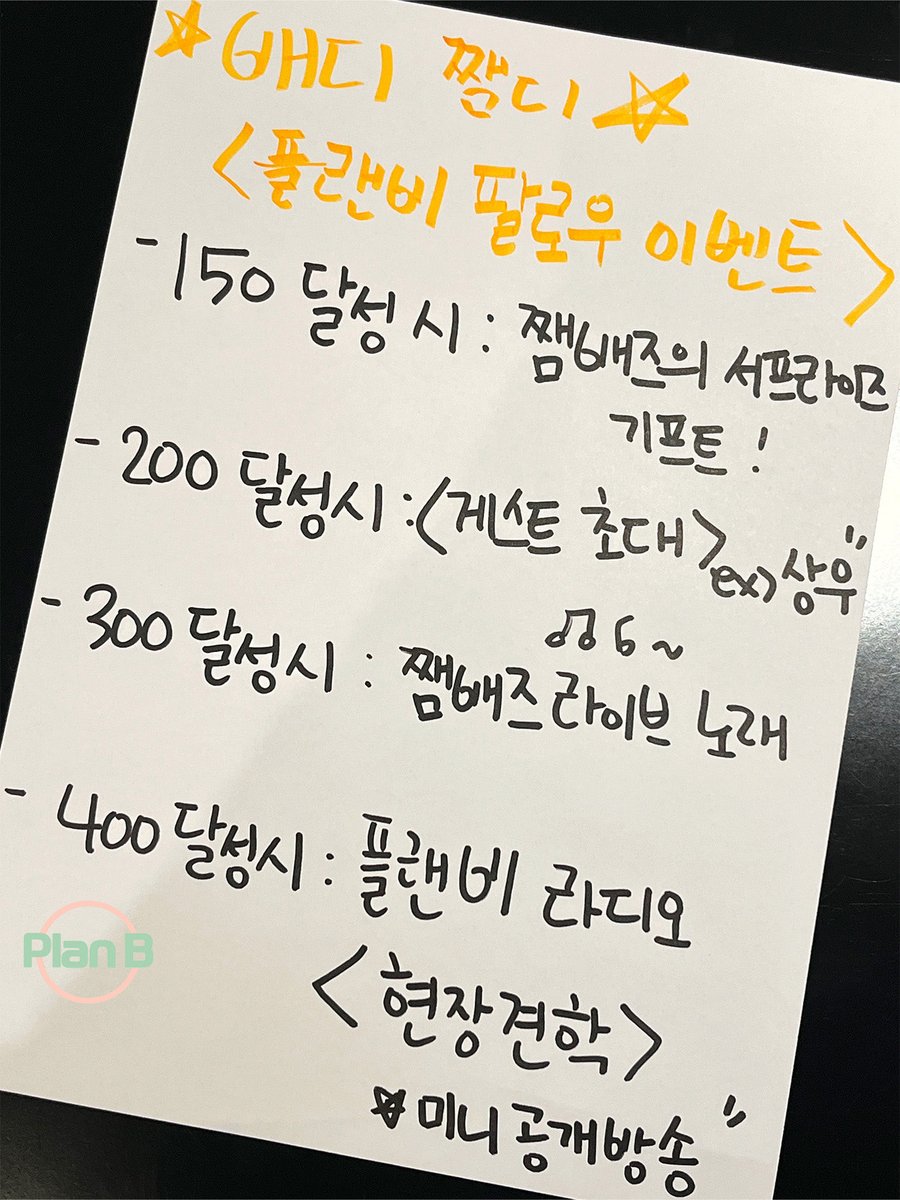 ☆ 배디 쨈디 ☆
<플랜비 팔로우 이벤트>
- 150 달성 시 : 쨈배즈의 서프라이즈
기프트 !
- 200 달성시 : <게스트 초대> ex) 상우"
♫♫♪~
- 300 달성시 : 쨈배즈 라이브 노래
- 400 달성시 : 플랜비 라디오
<현장견학>
☆ 미니 공개방송 "
Plan B